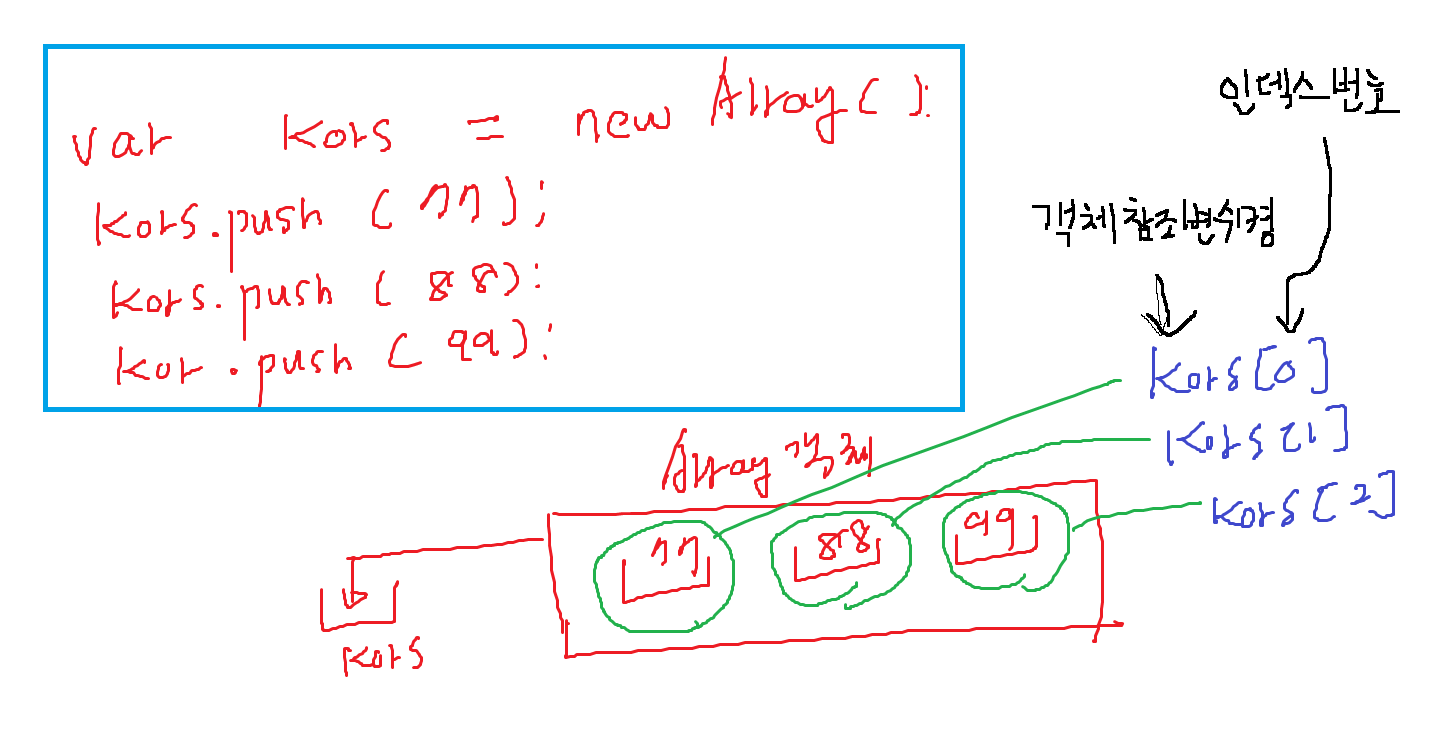 var kors = new Array( );
kors.push ( 77 );
kors.push ( 88 );
kor.push ( 99 );
인덱스번호
객체참조변수명
kors[0]
kors[1]
kors[2]
Array 객체
77 88 99
kors